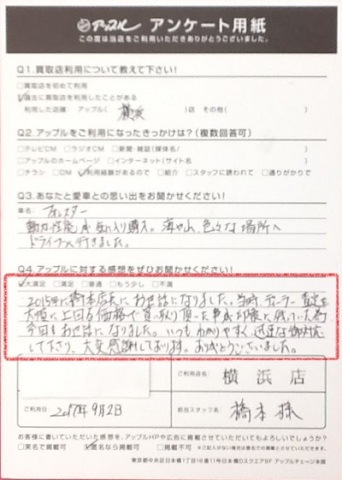 アップル アンケート用紙
この度は当店をご利用いただきありがとうございました。
Q1.買取店利用について教えて下さい!
買取店を初めて利用
過去に買取店を利用したことがある
利用した店舗 アップル( 横浜 )店 その他( )
Q2.アップルをご利用になったきっかけは?(複数回答可)
テレビCM ラジオCM 新聞・雑誌(媒体名/ )
アップルのホームページ インターネット(サイト名 )
チラシ DM 利用経験があるので 紹介 スタッフに誘われて 通りがかりで
Q3.あなたと愛車との思い出をお聞かせください!
車名:フォレスター
動力性能を気に入り購入。海や山、色々な場所へ
ドライブへ行きました。
Q4.アップルに対する感想をぜひお聞かせください!
大満足 満足 普通 もう少し 不満
2015年に橋本店長にお世話になりました。当時、ディーラー査定を
大幅に上回る価格で買い取り頂いた事が印象に残っていた為
今回もお世話になりました。いつもわかりやすく迅速な御対応
して下さり、大変感謝しております。ありがとうございました。
ご利用店名: 横浜店
ご利用日 2017年9月2日
担当スタッフ名: 橋本様
お客様に書いていただいた感想を、アップルHPや広告に掲載させていただいてもよろしいでしょうか?
実名で掲載可 匿名なら掲載可 掲載不可
東京都中央区日本橋1丁目16番11号日本橋Dスクエア5F アップルチェーン本部